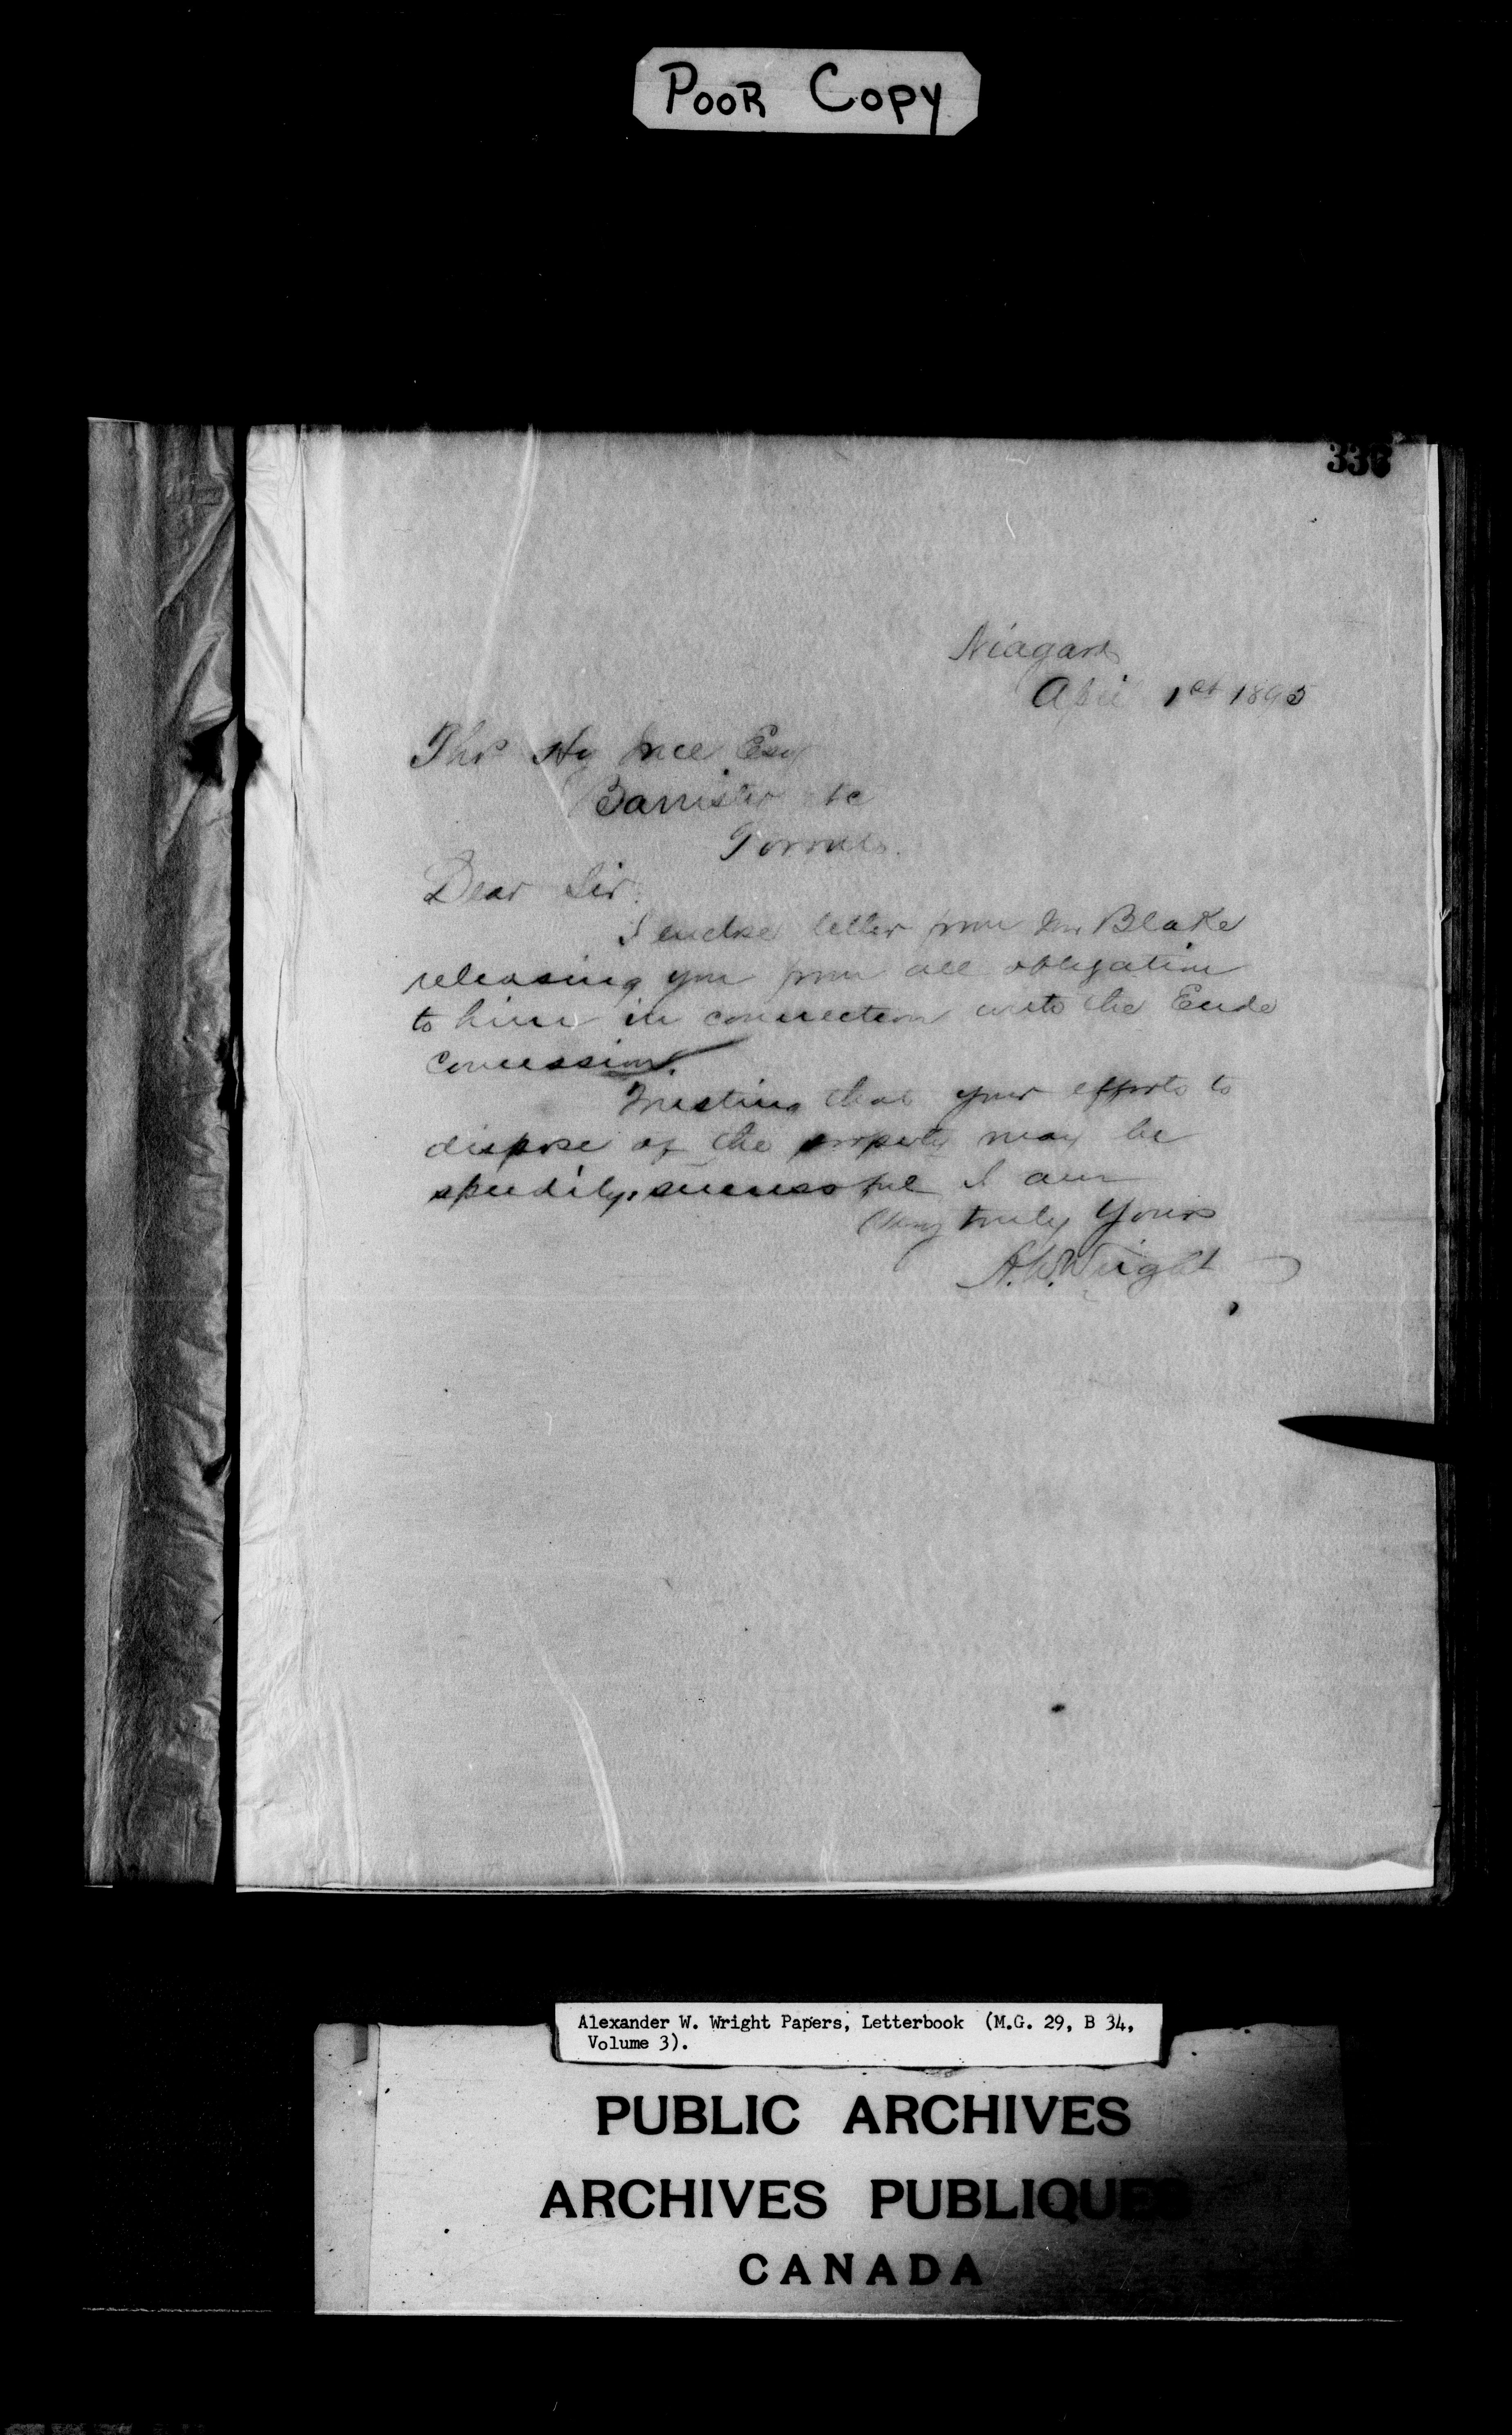 POOR COPY
336
Niagara
April 1st 1895
Thos Hy Ince Esq
Barrister etc
Toronto.
Dear Sir.
I enclose letter from Mr Blake
releasing you from all obligation
to him in connection with the
concession.
Trusting that your efforts to
dispose of the property may be
speedily successful I am
Very truly Yours
A.W. Wright
Alexander W. Wright Papers, Letterbook (M.G. 29, B 34,
Volume 3).
PUBLIC ARCHIVES
ARCHIVES PUBLIQUES
CANADA